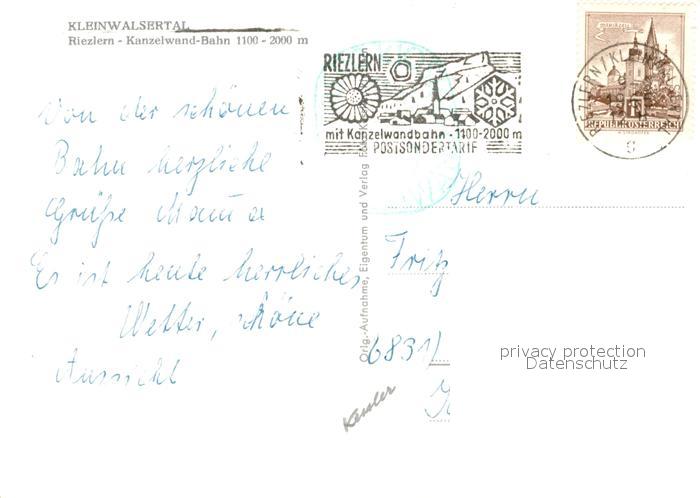 KLEINWALSERTAL
Riezlern - Kanzelwand-Bahn 1100 - 2000 m
Von der schönen
Bahn herzliche
Grüße Mama
Es ist heute herrliches
Wetter, schöne
Aussicht
Orig.-Aufnahme, Eigentum und Verlag
RIEZLERN
mit Kanzelwandbahn - 1100-2000 m
POSTSONDERTARIF
REPUBLIK ÖSTERREICH
Herrn
Fritz
6831)
privacy protection
Datenschutz
Kessler